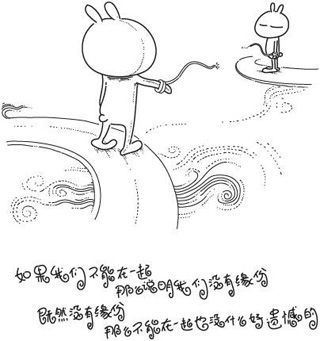 如果我们不能在一起
那么说明我们没有缘份
既然没有缘份
那么不能在一起也没什么好遗憾的